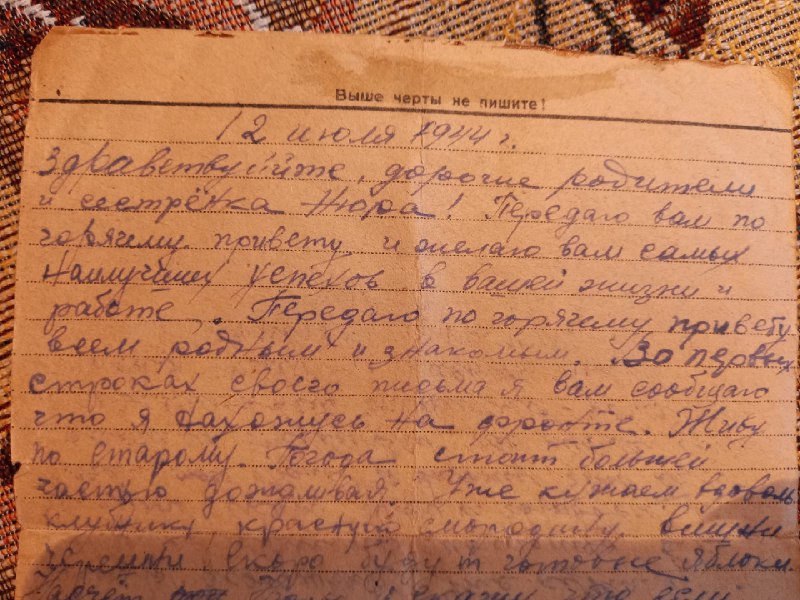 Выше черты не пишите!
12 июля 1944 г.
Здравствуйте, дорогие родители
и сестрёнка Нюра! Передаю вам по
горячему привету и желаю вам самых
наилучших успехов в вашей жизни и
работе. Передаю по горячему привету
всем родным и знакомым. Во первых
строках своего письма я вам сообщаю
что я нахожусь на фронте. Живу
по старому. Погода стоит большей
частью дождливая. Уже кушаем вдоволь
клубнику красную смородину вишни
скоро будут готовые яблоки